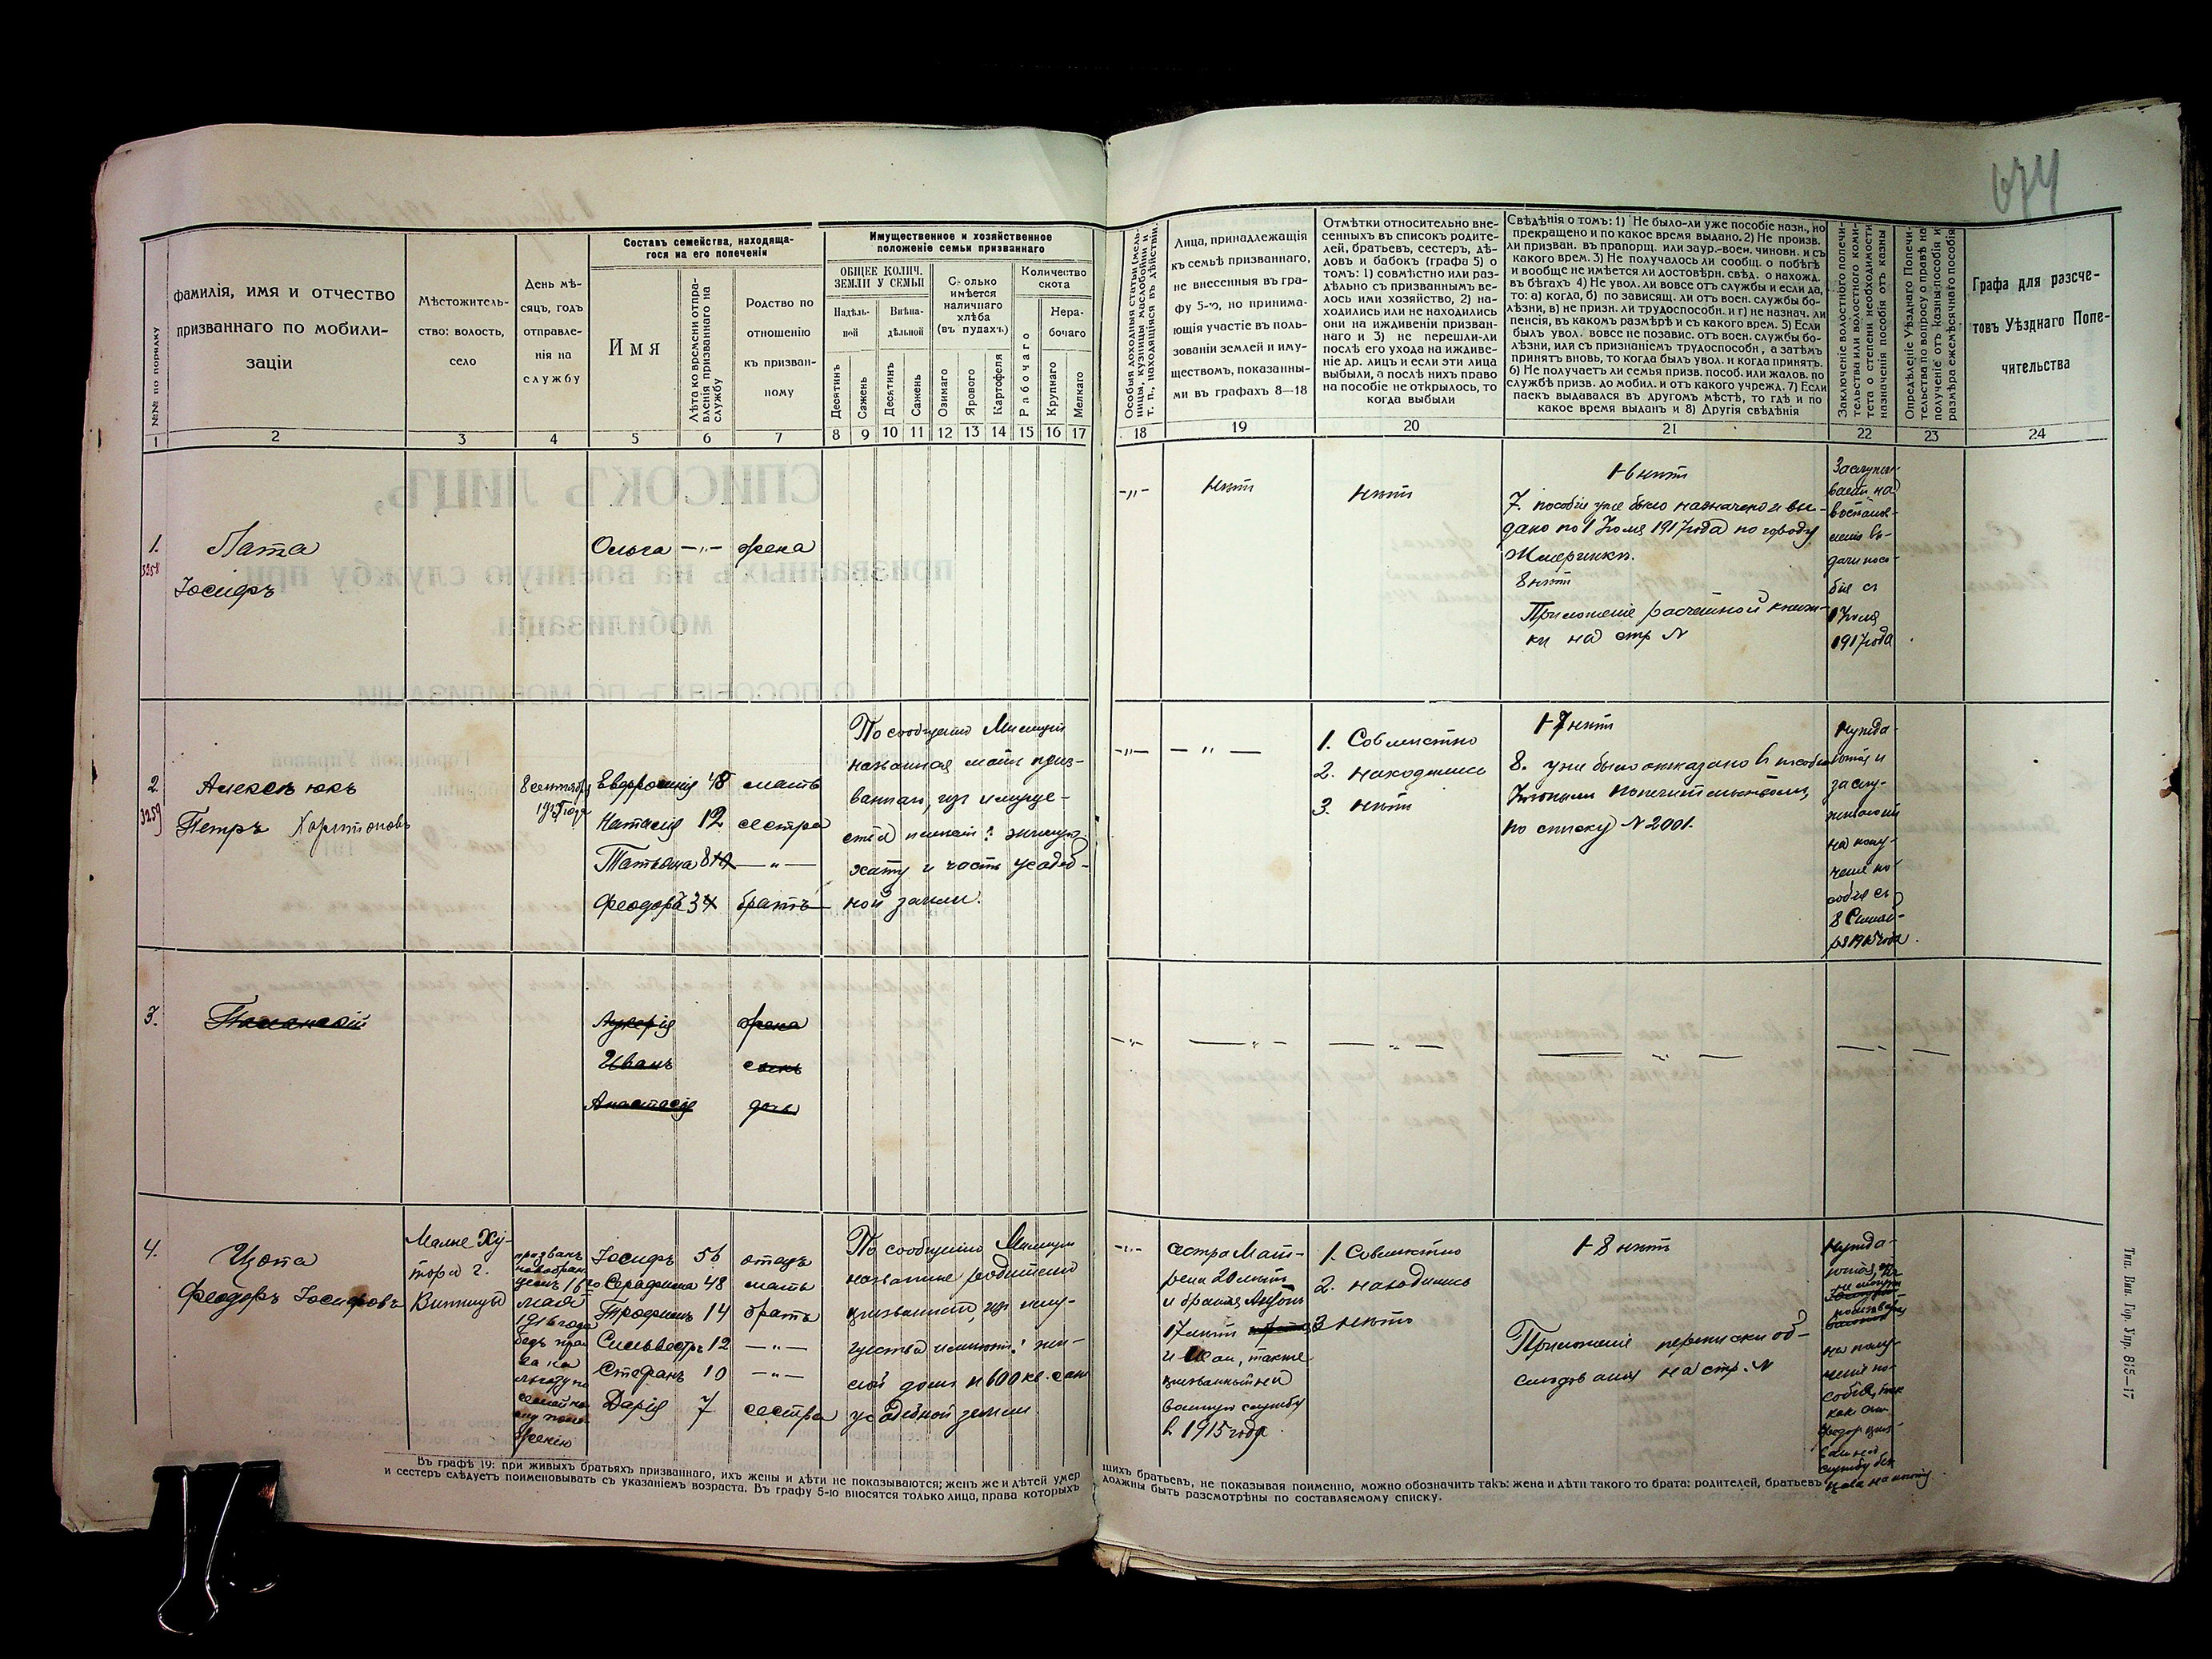 674
№№ по порядку
фамилія, имя и отчество
призваннаго по мобили-
заціи
Мѣстожитель-
ство: волость,
село
День мѣ-
сяцъ, годъ
отправле-
нія на
службу
Составъ семейства, находяща-
гося на его попеченіи
Имя
Лѣта ко времени отпра-
вленія призваннаго на
службу
Родство по
отношенію
къ призван-
ному
Имущественное и хозяйственное
положеніе семьи призваннаго
ОБЩЕЕ КОЛИЧ.
ЗЕМЛИ У СЕМЬИ
Надѣль-
ной
Внѣна-
дѣльной
Десятинъ
Сажень
Десятинъ
Сажень
Сколько
имѣется
наличнаго
хлѣба
(въ пудахъ)
Озимаго
Ярового
Картофеля
Количество
скота
Рабочаго
Нера-
бочаго
Крупнаго
Мелкаго
Особыя доходныя статьи (мель-
ницы, кузницы маслобойни и
т. п., находящіяся въ дѣйствіи
Лица, принадлежащія
къ семьѣ призваннаго,
не внесенныя въ гра-
фу 5-ю, но принима-
ющія участіе въ поль-
зованіи землей и иму-
ществомъ, показанны-
ми въ графахъ 8—18
Отмѣтки относительно вне-
сенныхъ въ списокъ родите-
лей, братьевъ, сестеръ, дѣ-
довъ и бабокъ (графа 5) о
томъ: 1) совмѣстно или раз-
дѣльно съ призваннымъ ве-
лось ими хозяйство, 2) на-
ходились или не находились
они на иждивеніи призван-
наго и 3) не перешли-ли
послѣ его ухода на иждиве-
ніе др. лицъ и если эти лица
выбыли, а послѣ нихъ право
на пособіе не открылось, то
когда выбыли
Свѣдѣнія о томъ: 1) Не было-ли уже пособіе назн., но
прекращено и по какое время выдано. 2) Не произв.
ли призван. въ прапорщ. или заур.-воен. чиновн. и съ
какого врем. 3) Не получалось ли сообщ. о побѣгѣ
и вообще не имѣется ли достовѣрн. свѣд. о нахожд.
въ бѣгахъ 4) Не увол. ли вовсе отъ службы и если да,
то: а) когда, б) по зависящ. ли отъ воен. службы бо-
лѣзни, в) не призн. ли трудоспособн. и г) не назнач. ли
пенсія, въ какомъ размѣрѣ и съ какого врем. 5) Если
былъ увол. вовсе не позавис. отъ воен. службы бо-
лѣзни, или съ признаніемъ трудоспособн, а затѣмъ
принятъ вновь, то когда былъ увол. и когда принятъ.
6) Не получаетъ ли семья призв. пособ. или жалов. по
службѣ призв. до мобил. и отъ какого учрежд. 7) Если
паекъ выдавался въ другомъ мѣстѣ, то гдѣ и по
какое время выданъ и 8) Другія свѣдѣнія
Заключеніе волостного попечи-
тельства или волостного коми-
тета о степени необходимости
назначенія пособія отъ казны
Опредѣленіе Уѣзднаго Попечи-
тельства по вопросу о правѣ на
полученіе отъ казны пособія и
размѣра ежемѣсячнаго пособія
Графа для разсче-
товъ Уѣзднаго Попе-
чительства
1 2 3 4 5 6 7 8 9 10 11 12 13 14 15 16 17 18 19 20 21 22 23 24
1.
3258
Лата
Іосифъ
Ольга —„— жена
—„—
нѣтъ
нѣтъ
1-6 нѣтъ
7. пособіе уже было назначено и вы-
дано по 1 Іюля 1917 года по городу
Жмеринкѣ.
8 нѣтъ
Приложеніе расчетной книж-
ки на стр №
1 Іюля
1917 года
2.
3259
Алексѣюкъ
Петръ Харитоновъ
8 сентября
Евфросинія 48 мать
Наталія 12 сестра
Татьяна 8 —„—
Феодоръ 3 братъ
По сообщенію Милиціи
названная мать приз-
ваннаго, изъ имуще-
ства имѣетъ: жилую
хату и часть усадеб-
ной земли.
—„— — „ —
1. Совмѣстно
2. находились
3. нѣтъ
1-7 нѣтъ
8. уже было отказано въ пособіи
по списку № 2001.
Нужда-
ются и
заслу-
живаютъ
на полу-
ченіе по-
собія съ
8 Сентяб-
ря 1915 года.
3.
Иванъ сынъ
Анастасія дочь
4.
Цопа
Феодоръ Іосифовъ
Малые Ху-
тора г.
Винницы
призванъ
новобран-
цемъ 16го
мая
1916 года
безъ пра-
ва на
льготу по
семейно-
му поло-
женію
Іосифъ 56 отецъ
Серафима 48 мать
Трофимъ 14 братъ
Сильвестръ 12 —„—
Стефанъ 10 —„—
Дарія 7 сестра
По сообщенію Милиціи
названные родители
призваннаго, изъ иму-
щества имѣютъ: жи-
лой домъ и 600 кв. саж
усадебной земли.
сестра Мат-
рена 20 лѣтъ
и братья Антонъ
17 лѣтъ
призванный на
военную службу
въ 1915 году.
1. Совмѣстно
2. находились
3 нѣтъ
1-8 нѣтъ
Приложеніе переписки об-
слѣдованія на стр. №
Нужда-
ются,
на полу-
ченіе по-
собія, такъ
какъ
Въ графѣ 19: при живыхъ братьяхъ призваннаго, ихъ жены и дѣти не показываются; женъ же и дѣтей умер
шихъ братьевъ, не показывая поименно, можно обозначить такъ: жена и дѣти такого то брата: родителей, братьевъ
и сестеръ слѣдуетъ поименовывать съ указаніемъ возраста. Въ графу 5-ю вносятся только лица, права которыхъ
должны быть разсмотрѣны по составляемому списку.
Тип. Вин. Гор. Упр. 815—17